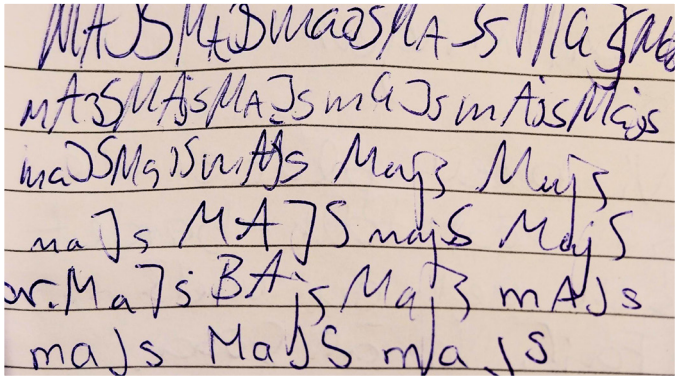 MAJSMAJSmaJSMAJSMaJSMa
mAJSMAjsMAJsmaJsmAJsMajs
maJSMaJSmAJs Majs Majs
maJs MAJS majS MajS
or.MaJs BAjs Majs mAJs
maJs MaJS majs